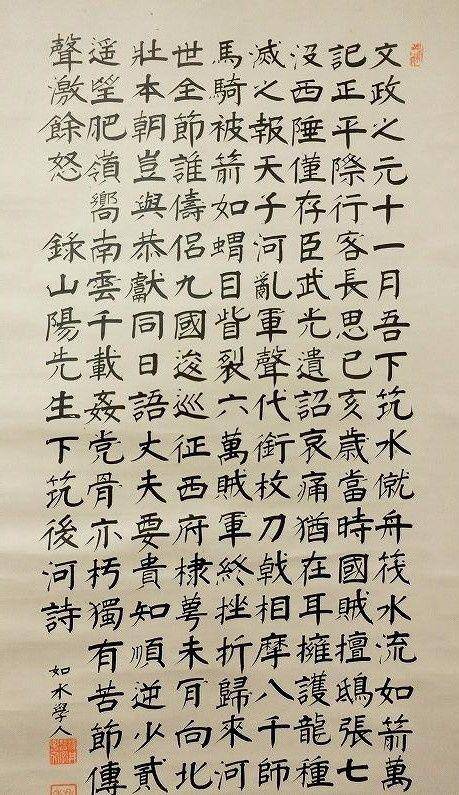 文政之元十一月吾下筑水僦舟筏水流如箭萬
記正平際行客長思己亥歲當時國賊擅鴟張七
没西陲僅存臣武光遺詔哀痛猶在耳擁護龍種
滅之報天子河亂軍聲代銜枚刀戟相摩八千師
馬騎被箭如蝟目眥裂六萬賊軍終挫折歸來河
世全節誰儔侶九國逡巡征西府棣萼未肎向北
壯本朝豈與恭獻同日語丈夫要貴知順逆少貳
遥望肥嶺嚮南雲千載姦党骨亦朽獨有苦節傳
聲激餘怒 錄山陽先生下筑後河詩
如水學人